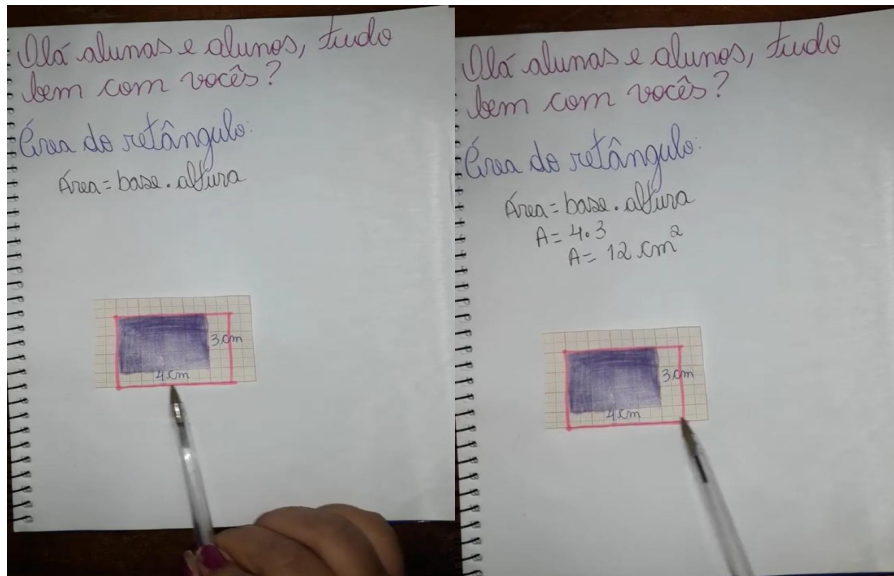 Olá alunas e alunos, tudo
bem com vocês?
Área do retângulo:
Área = base . altura
3 cm
4 cm
Olá alunas e alunos, tudo
bem com vocês?
Área do retângulo:
Área = base . altura
A = 4 . 3
A = 12 cm²
3 cm
4 cm